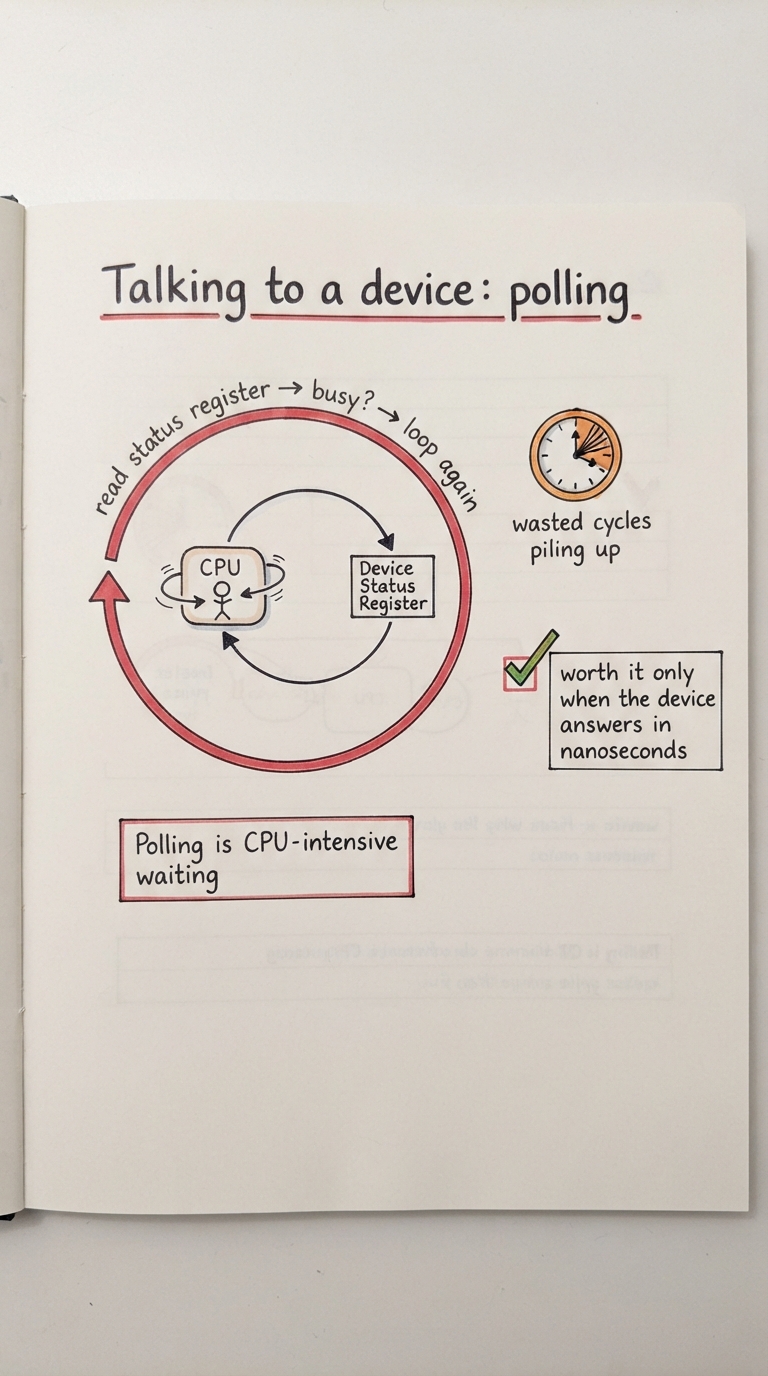 Talking to a device: polling
read status register → busy? → loop again
CPU
Device
Status
Register
wasted cycles
piling up
worth it only
when the device
answers in
nanoseconds
Polling is CPU-intensive
waiting